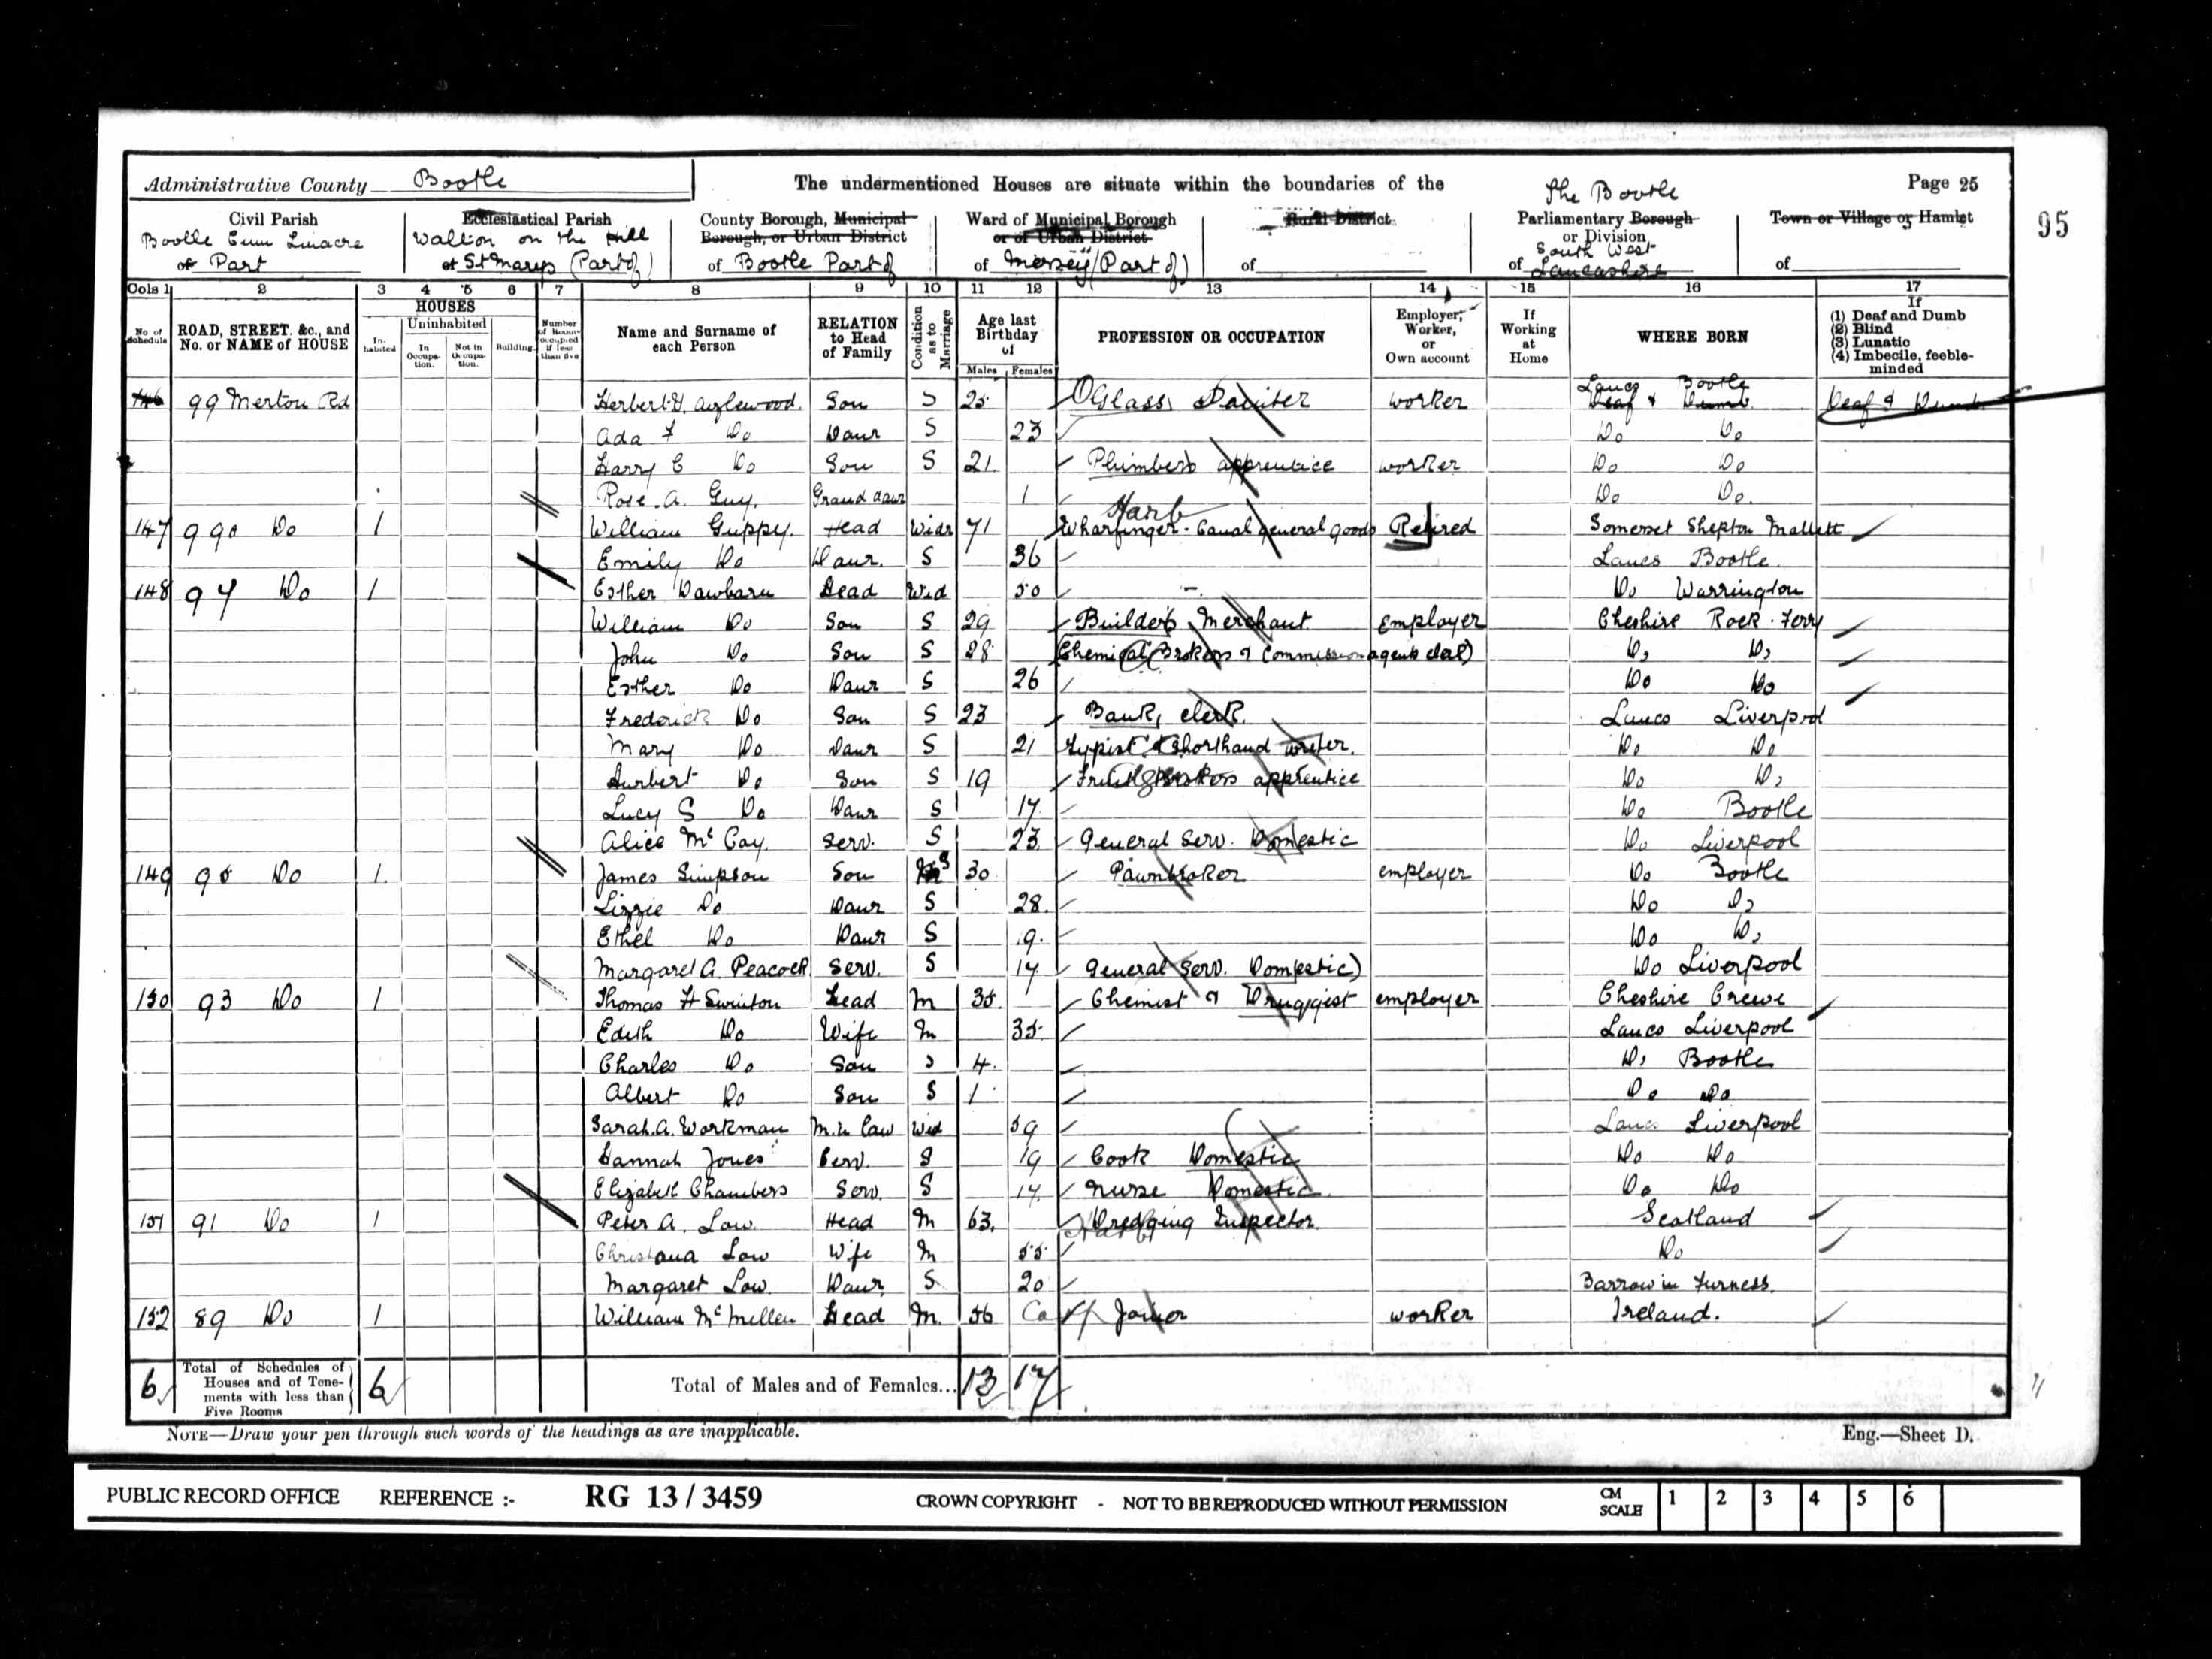 Administrative County Bootle
The undermentioned Houses are situate within the boundaries of the
Page 25
95
Civil Parish
Bootle Cum Linacre
of Part
Ecclesiastical Parish
Walton on the Hill
of St Marys (Part of)
County Borough, Municipal Borough, or Urban District
of Bootle Part of
Ward of Municipal Borough or of Urban District
of Mersey (Part of)
Rural District
of
The Bootle
Parliamentary Borough or Division
South West
of Lancashire
Town or Village or Hamlet
of
Cols 1 2 3 4 5 6 7 8 9 10 11 12 13 14 15 16 17
No of Schedule
ROAD, STREET, &c., and No. or NAME of HOUSE
HOUSES
Inhabited
Uninhabited
In Occupation.
Not in Occupation.
Building.
Number of Rooms occupied if less than five
Name and Surname of each Person
RELATION to Head of Family
Condition as to Marriage
Age last Birthday of
Males Females
PROFESSION OR OCCUPATION
Employer, Worker, or Own account
If Working at Home
WHERE BORN
If
(1) Deaf and Dumb
(2) Blind
(3) Lunatic
(4) Imbecile, feeble-minded
146 99 Merton Rd Herbert Son S 25 Glass Painter worker Lancs Bootle Deaf & Dumb Deaf & Dumb
Ada F Do Daur S 23 Do Do
Harry C Do Son S 21 Plumbers apprentice worker Do Do
Rose A. Guy. Grand daur 1 Do Do.
147 99a Do 1 William Guppy. Head Widr 71 Wharfinger - Canal general goods Retired Somerset Shepton Mallett
Emily Do Daur. S 36 Lancs Bootle
148 97 Do 1 Esther Dawbarn Head Wid 50 - Do Warrington
William Do Son S 29 Builders Merchant employer Cheshire Rock Ferry
John Do Son S 28 Chemical Brokers & Commission agents Do Do
Esther Do Daur S 26 Do Do
Frederick Do Son S 23 Bank clerk. Lancs Liverpool
Mary Do Daur S 21 Typist & Shorthand writer. Do Do
Hurbert Do Son S 19 brokers apprentice Do Do
Lucy S Do Daur S 17 Do Bootle
Alice Mc Coy. Serv. S 23 General Serv. Domestic Do Liverpool
149 95 Do 1. James Simpson Son S 30 Pawnbroker employer Do Bootle
Lizzie Do Daur S 28. Do Do
Ethel Do Daur S 19. Do Do
Margaret A. Peacock Serv. S 17 General Serv. Domestic) Do Liverpool
150 93 Do 1 Thomas H Swinton Head M 35. Chemist & Druggist employer Cheshire Crewe
Edith Do Wife M 35. Lancs Liverpool
Charles Do Son S 4. Do Bootle
Albert Do Son S 1 Do Do
Sarah. A. Workman M. in law Wid 59 Lancs Liverpool
Hannah Jones Serv. S 19 Cook Domestic Do Do
Elizabeth Chambers Serv. S 17. Nurse Domestic. Do Do
151 91 Do 1 Peter A. Low. Head M 63. Dredging Inspector Scotland
Christana Low Wife M 55. Do
Margaret Low. Daur. S. 20 Barrow in Furness.
152 89 Do 1 William Mc Millen Head M. 56 Joiner worker Ireland.
6 Total of Schedules of Houses and of Tenements with less than Five Rooms 6 Total of Males and of Females... 13 17
NOTE—Draw your pen through such words of the headings as are inapplicable.
Eng.—Sheet D.
PUBLIC RECORD OFFICE REFERENCE :- RG 13 / 3459 CROWN COPYRIGHT - NOT TO BE REPRODUCED WITHOUT PERMISSION CM SCALE 1 2 3 4 5 6